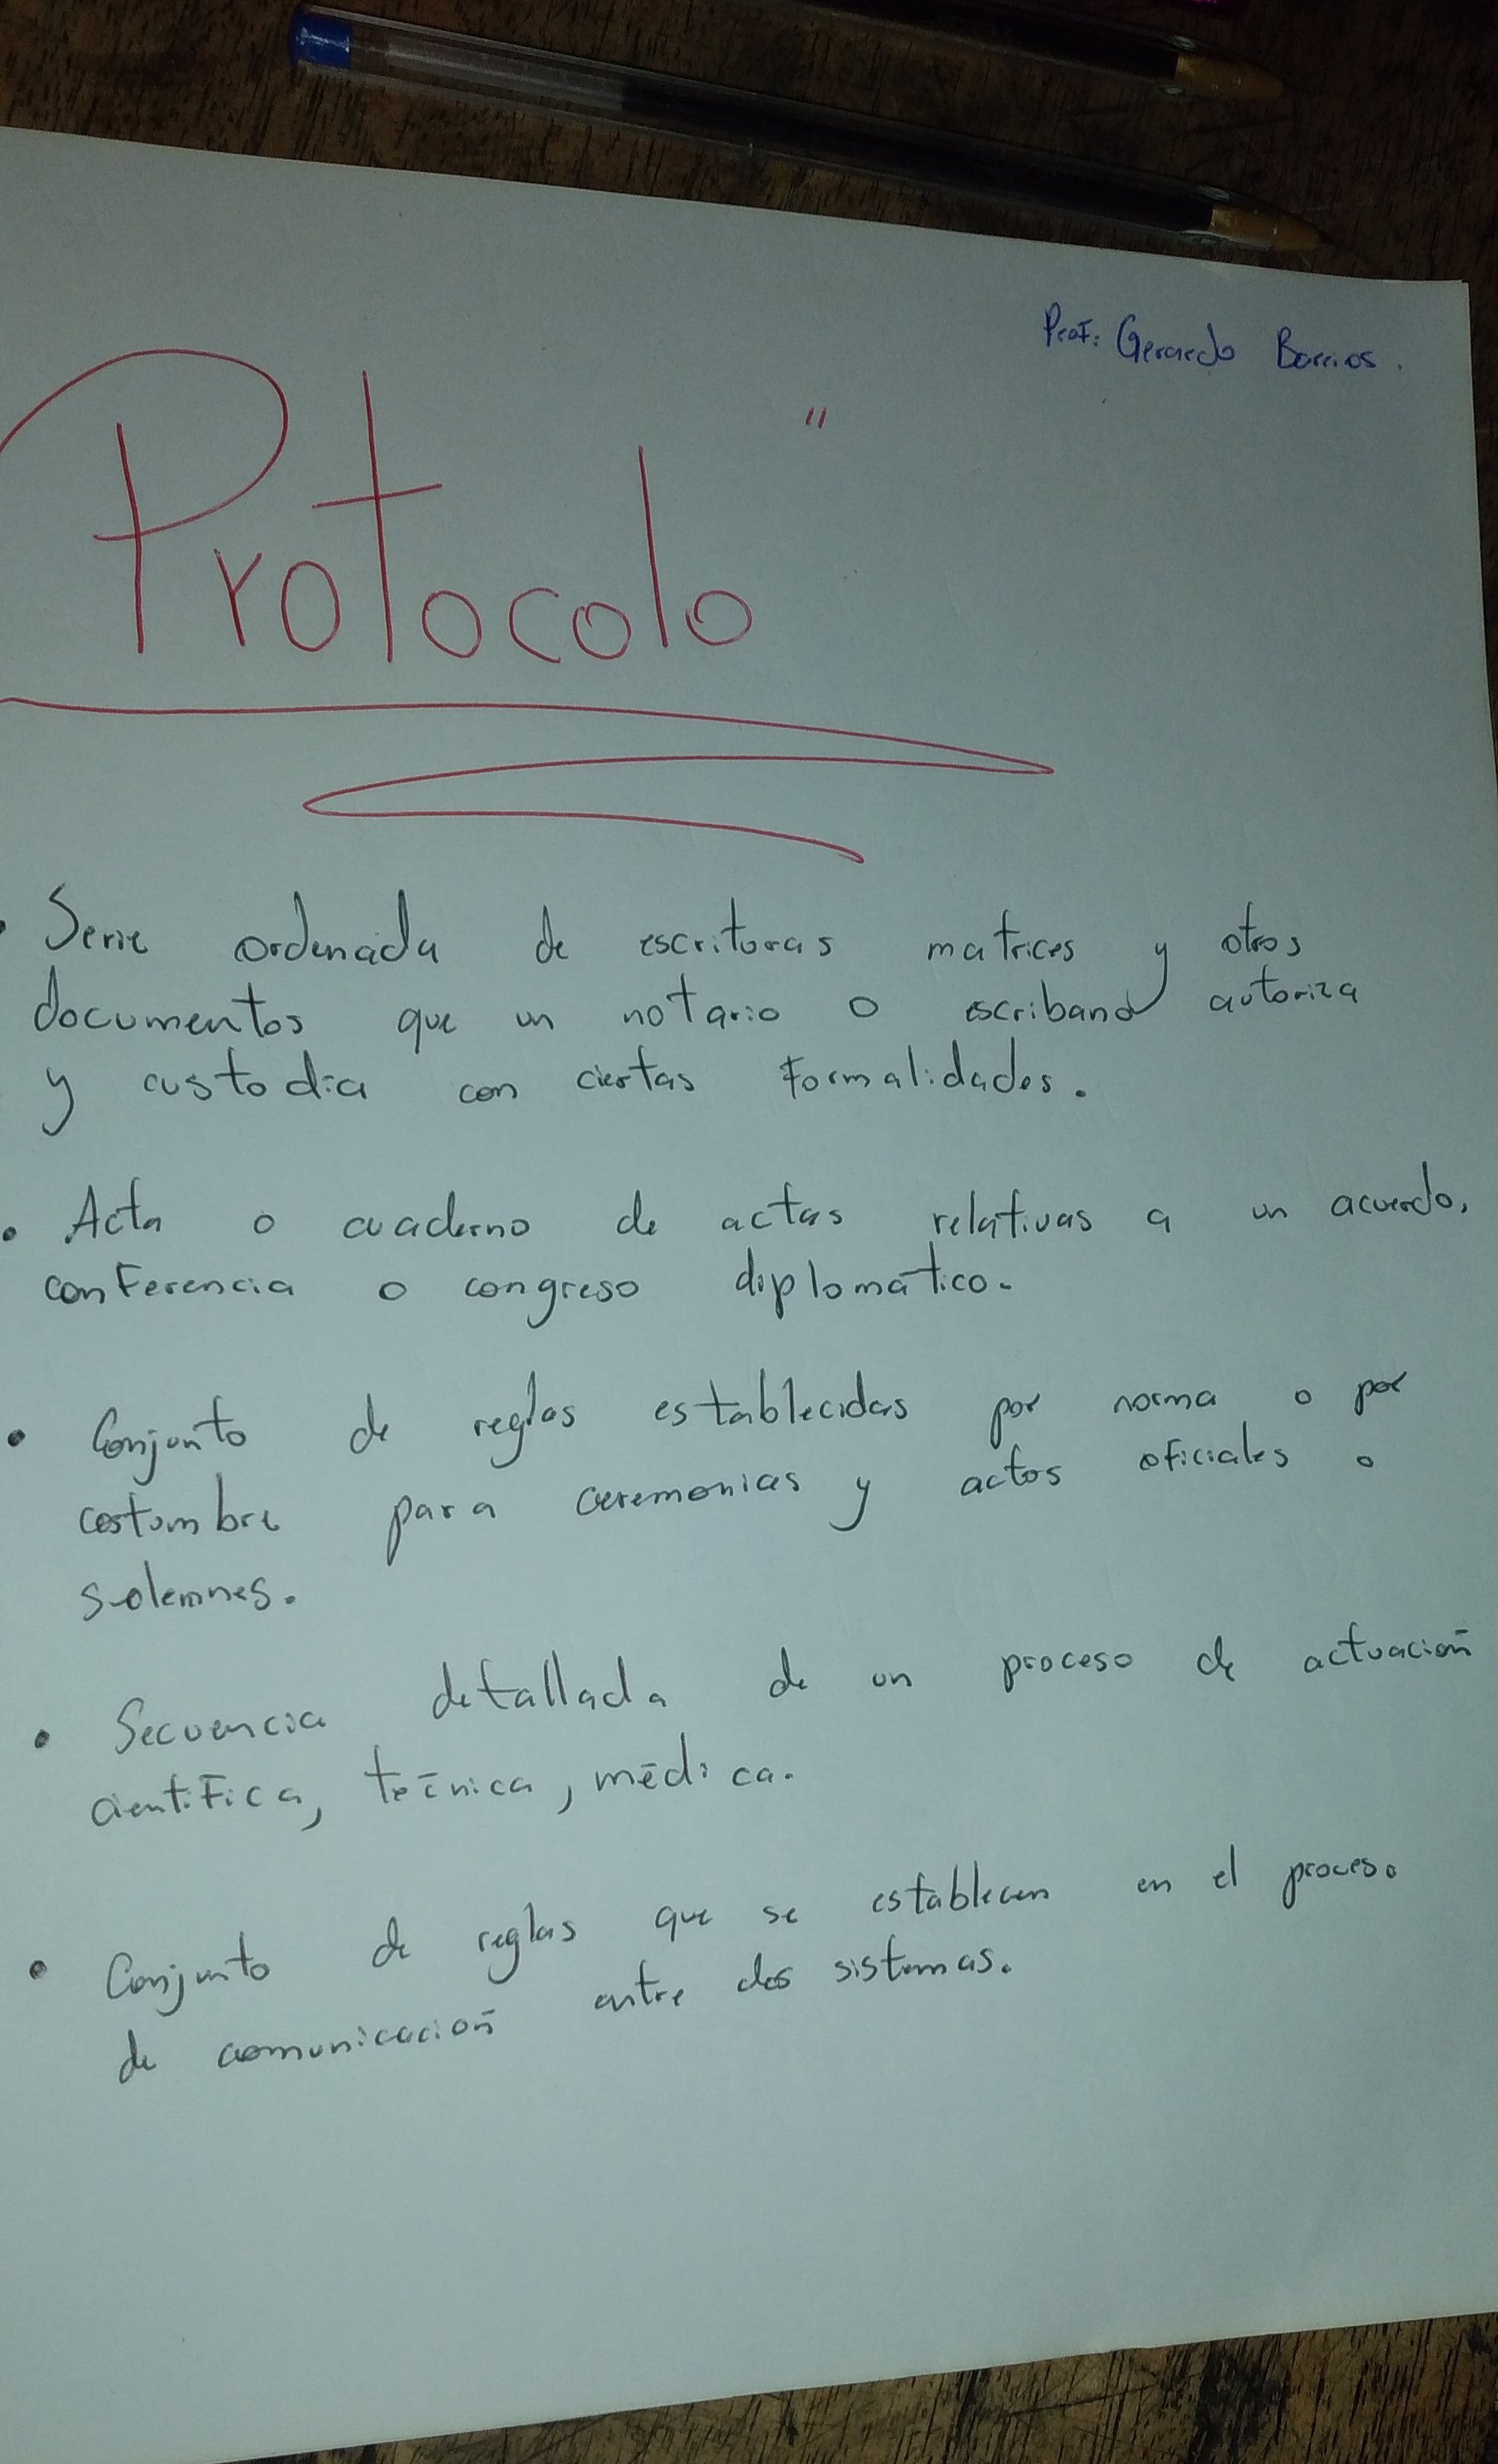 Prof: Gerardo Barrios.
Protocolo"
• Serie ordenada de escrituras matrices y otros
documentos que un notario o escribano autoriza
y custodia con ciertas formalidades.
• Acta o cuaderno de actas relativas a un acuerdo,
conferencia o congreso diplomático.
• Conjunto de reglas establecidas por norma o por
costumbre para ceremonias y actos oficiales o
solemnes.
• Secuencia detallada de un proceso de actuación
científica, técnica, médica.
• Conjunto de reglas que se establecen en el proceso
de comunicación entre dos sistemas.